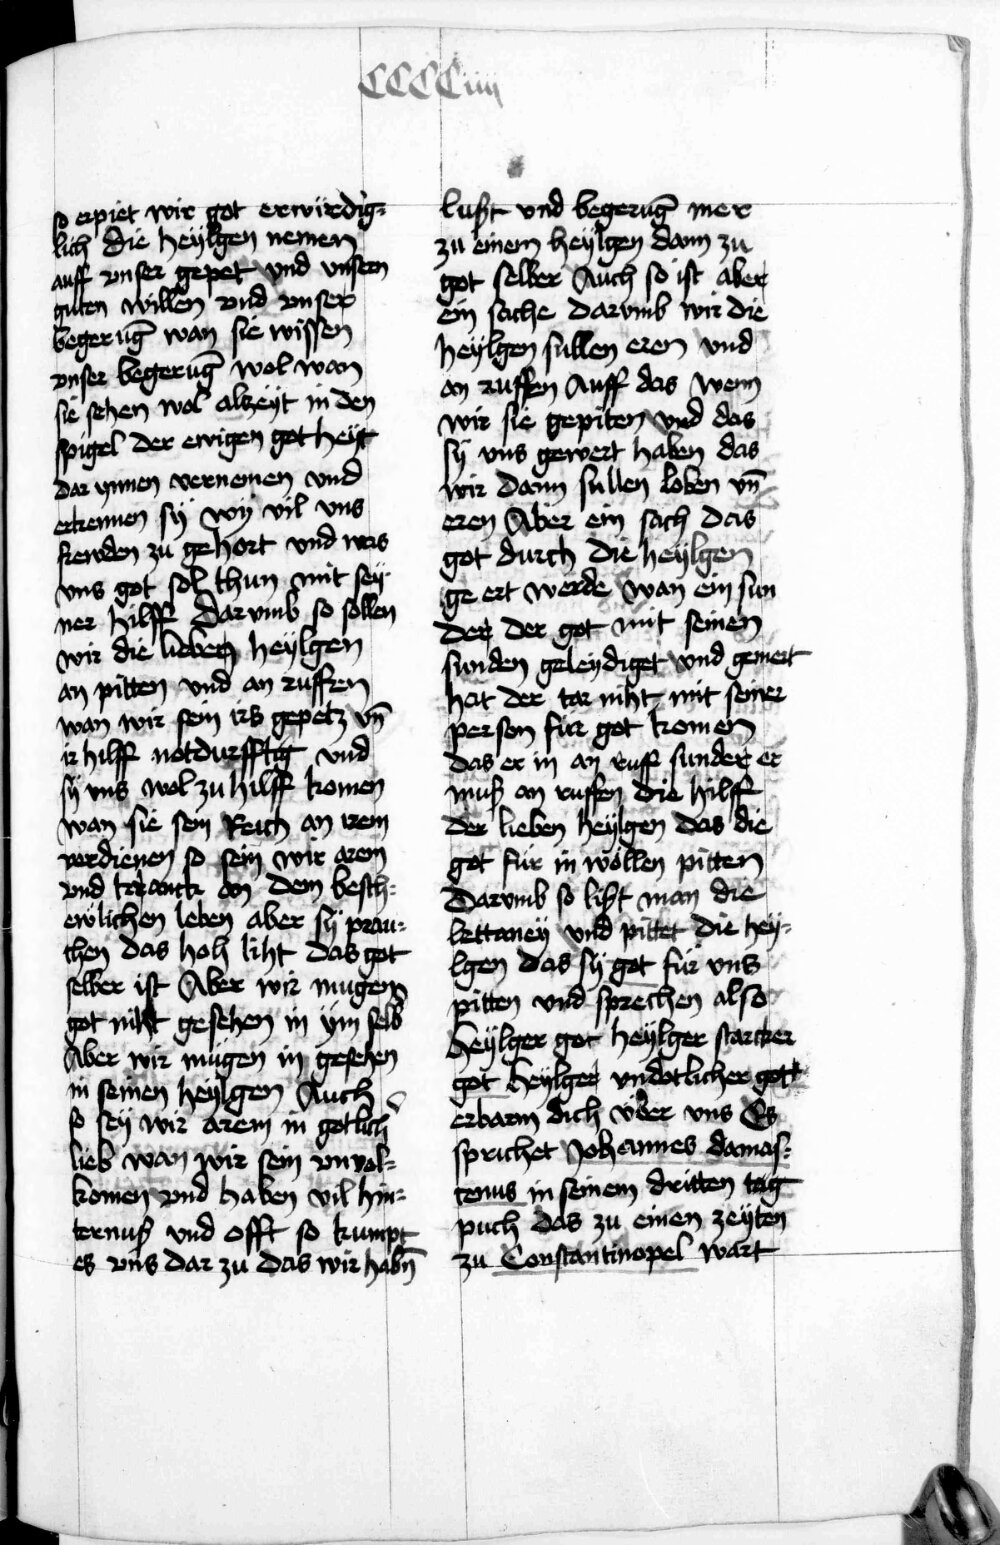 CCCCiiij
so erpiet wir got erwirdig-
lich die heÿlgen nemen
auff vnser gepet vnd vnsern
guten willen vnd vnser
begerūg wan sie wissen
vnser begerūg wol wan
sie sehen wol alzeÿt in den
spigel der ewigen gotheÿt
dar ynnen vernemen vnd
erkennen sÿ wÿ vil vns
frewden zu gehort vnd was
vns got sol thun mit seÿ-
ner hilff Darvmb so sollen
wir die lieben heÿlgen
an pitten vnd an ruffen
wan wir sein irs gepetz vn̄
ir hilff notdurfftig vnd
sÿ vns wol zu hilff komen
wan sie sein Reich an irem
vordienen so sein wir arem
vnd kranck an dem besch-
ewlichen leben aber sÿ prau-
chen das hoh liht das got
selber ist Aber wir mugen
got niht gesehen in ÿm selb
Aber wir mügen in gesehen
in seinen heÿlgen Auch
so seÿ wir arem in gotlich̄
lieb wan wir sein vnvol-
komen vnd haben vil hin-
ternuß vnd offt so kumpt
es vns dar zu das wir habn̄
lußt vnd begerūg mer
zu einem heÿlgen dann zu
got selber Auch so ist aber
ein sache darvmb wir die
heÿlgen sullen eren vnd
an ruffen Auff das wenn
wir sie gepiten vnd das
sÿ vns gewert haben das
wir dann sullen loben vn̄
eren Aber ein sach das
got durch die heÿlgen
ge ert werde wan ein sun
der der got mit seinen
sunden geleÿdiget vnd gemert
hat der tar niht mit seiner
person fur got komen
das er in an ruff sunder er
muß an ruffen die hilff
der lieben heÿlgen das die
got für in wöllen pitten
Darvmb so lißt man die
lettaneÿ vnd pittet die heÿ-
lgen das sÿ got für vns
pitten vnd sprechen also
Heÿlger got heÿlger starcker
got heÿlger vndotlicher got
erbarm dich vber vns Es
sprichet Johannes damas-
cenus in seinem dritten tag
puch das zu einen zeÿten
zu Constantinopel wart